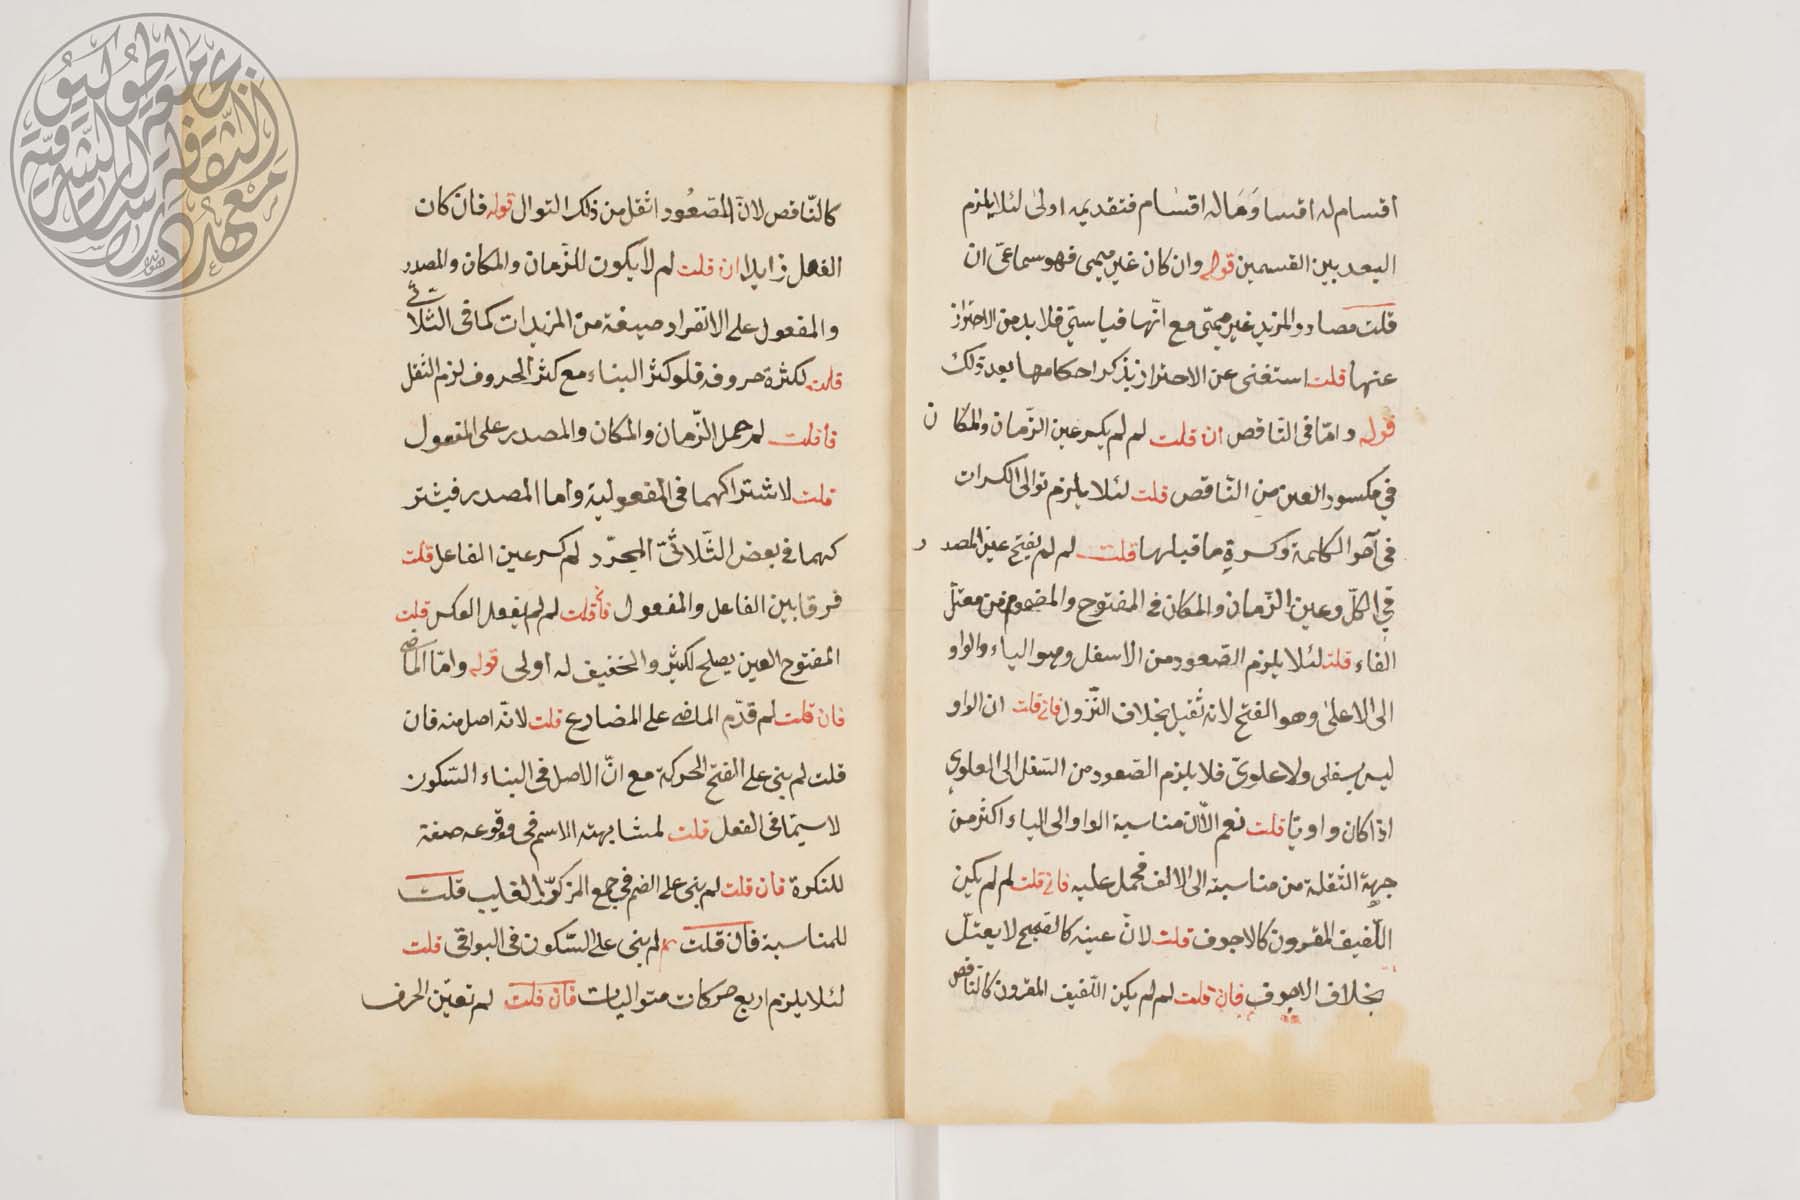 اقسام له اقسا وَمَاله اقسَام فتقديمه اولىٰ لئلا يلزم
البعد بين القسمين قوله وان كان غير ميمي فهو سماعيّ ان
قلت مصادر المزيد غير ميميّ مع انّها قياسيّ فلا بد من الاحتراز
عنها قلت استغنى عن الاحتراز بذكر احكامها بعد ذلك
قوله وامّا في النّاقص ان قلت لم لم يكسر عين الزّمان والمكان
في مكسور العين من النّاقص قلت لئلا يلزم توالى الكسرات
في آخر الكلمة وكسرة ما قبلها قلت لم لم يفتح عين المصدر
في الكلّ وعين الزّمان والمكان في المفتوح والمضموم من معتل
الفاء قلت لئلا يلزم الصّعود من الاسفل وهو الياء والواو
الى الاعلى وهو الفتح لانه ثقيل بخلاف النّزول فان قلت ان الواو
ليس بسفلى ولا علويّ فلا يلزم الصّعود من السّفل الى العلوي
اذا كان واويّا قلت نعم الّا انّ مناسبة الواو الى الياء اكثر من
جهة الثقلة من مناسبته الى الالف فحمل عليه فان قلت لم لم يكن
اللّفيف المقرون كالاجوف قلت لانّ عينه كالصّحيح لا يعتلّ
بخلاف الاجوف فان قلت لم لم يكن اللّفيف المقرون كالنّاقص
كالنّاقص لانّ الصّعُود اثقل من ذلك التوال قوله فان كان
الفعل زايدا ان قلت لم لا يكون للزّمان والمكان والمصدر
والمفعول على الانفراد صيغة من المزيدات كما في الثّلاثي
قلت لكثرة حروفه فلو كثر البناء مع كثر الحروف لزم الثقل
فان قلت لم حمل الزّمان والمكان والمصدر على المفعول
قلت لاشتراكهما في المفعولية واما المصدر فيشتر
كهما في بعض الثّلاثيّ المجرّد لم كسر عين الفاعل قلت
فرقا بين الفاعل والمفعول فان قلت لم لم يفعل العكس قلت
المفتوح العين يصلح لكثير والخفيف له اولى قوله وامّا الماضي
فان قلت لم قدّم الماضي على المضارع قلت لانّه اصل منه فان
قلت لم بنى على الفتح الحركة مع انّ الاصل في البناء السّكون
لا سيّما في الفعل قلت لمشابهته الاسم في وقوعه صفة
للنكرة فان قلت لم بنى على الضم في جمع المزكّر الغايب قلت
للمناسبة فان قلت لم بنى على السّكون في البواقى قلت
لئلا يلزم اربع حركات متواليات فان قلت لم تعيّن الحرف